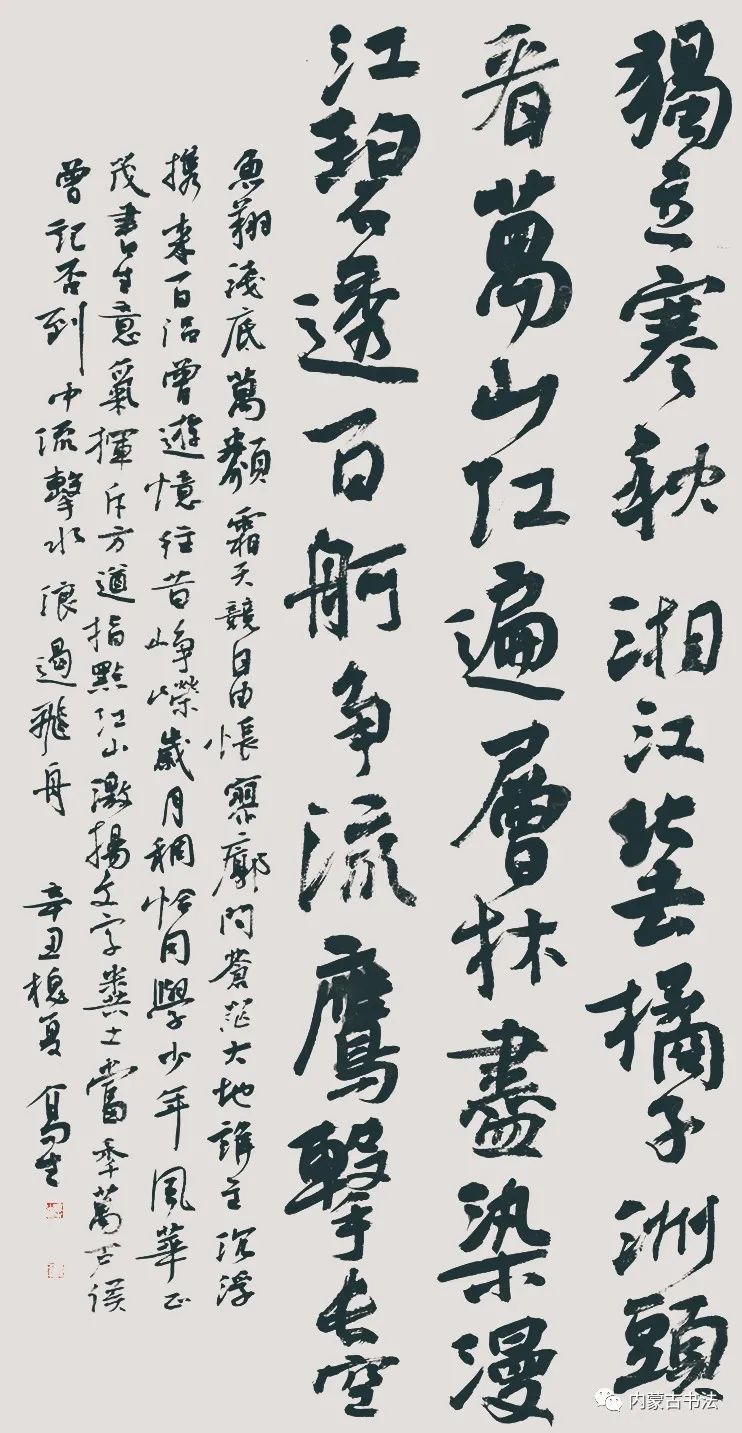 獨立寒秋湘江北去橘子洲頭
看萬山紅遍層林盡染漫
江碧透百舸争流鷹擊長空
魚翔淺底萬類霜天競自由悵寥廓問蒼茫大地誰主沉浮
携來百侣曾遊憶往昔崢嶸歲月稠恰同學少年風華正
茂書生意氣揮斥方遒指點江山激揚文字糞土當年萬户侯
曾記否到中流擊水浪遏飛舟 辛丑槐夏
内蒙古书法